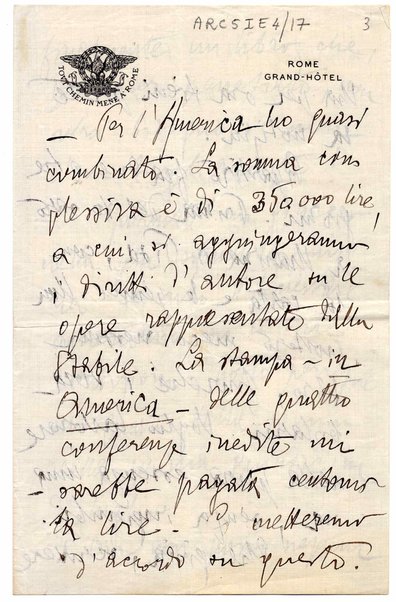 ARC5IE4/17
3
TOUT CHEMIN MÈNE A ROME
ROME
GRAND-HÔTEL
— Per l'America ho quasi
combinato. La somma com
plessiva è di 350000 lire,
a cui si aggiungeranno
i diritti d'autore su le
opere rappresentate dalla
Stabile. La stampa – in
America – delle quattro
conferenze inedite mi
sarebbe pagata centomi
la lire. Ci metteremo
d'accordo su questo.